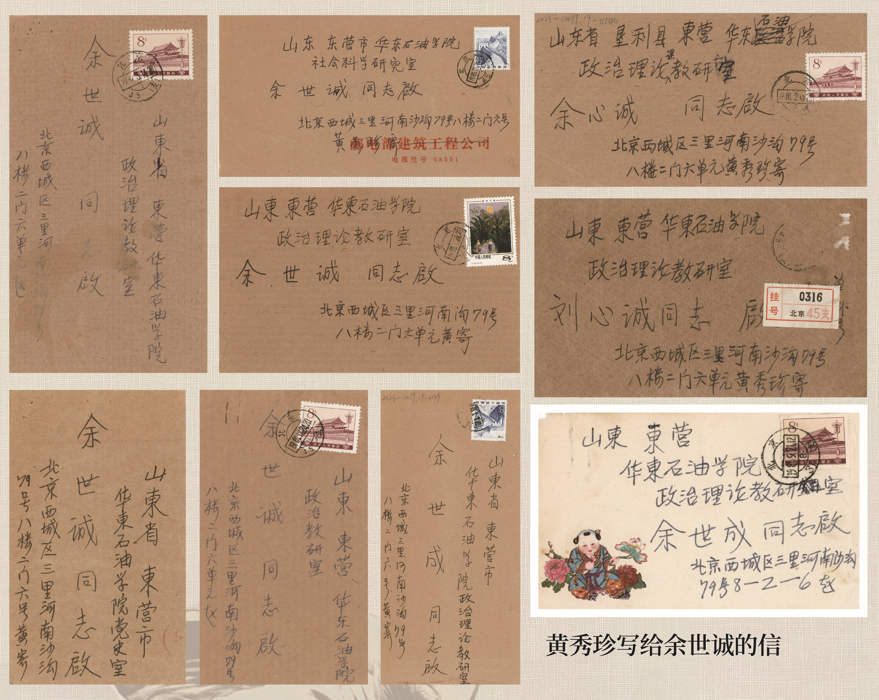 余世诚同志啟
山東省 東营 华東石油学院
政治理论教研室
北京西城区三里河南沙沟
八楼二门六单元
8
山东 东营市 华东石油学院
社会科学研究室
余世诚同志啟
北京西城三里河南沙沟79号八楼二门六号
黄秀珍寄
邮电部建筑工程公司
电报挂号 08501
山東 東营 华東石油学院
政治理论教研室
余世诚 同志啟
北京西城区三里河南沟79号
八楼二门六单元黄寄
山东省 垦利县 東营 华东石油学院
政治理论教研室
余心诚 同志啟
北京西城区三里河南沙沟79号
八楼二门六单元黄秀珍寄
8
山東 東营 华東石油学院
政治理论教研室
刘心诚同志 啟
北京西城区三里河南沙沟79号
八楼二门六单元黄秀珍寄
挂号
0316
北京 45支
山東省 東营市
华東石油学院党史室
余世诚同志啟
北京西城区三里河南沙沟
79号八楼二门六号黄寄
山東 東营 华东石油学院
政治教研室
余世诚同志啟
北京西城区三里河南沙沟79号
八楼二门六单元
8
山東省 東营市
华東石油学院政治理论教研室
余世成同志啟
北京西城区三里河南沙沟79号
八楼二门六号黄寄
山東 東营
华東石油学院
政治理论教研室
余世成同志啟
北京西城区三里河南沙沟
79号8-2-6
8
黄秀珍写给余世诚的信